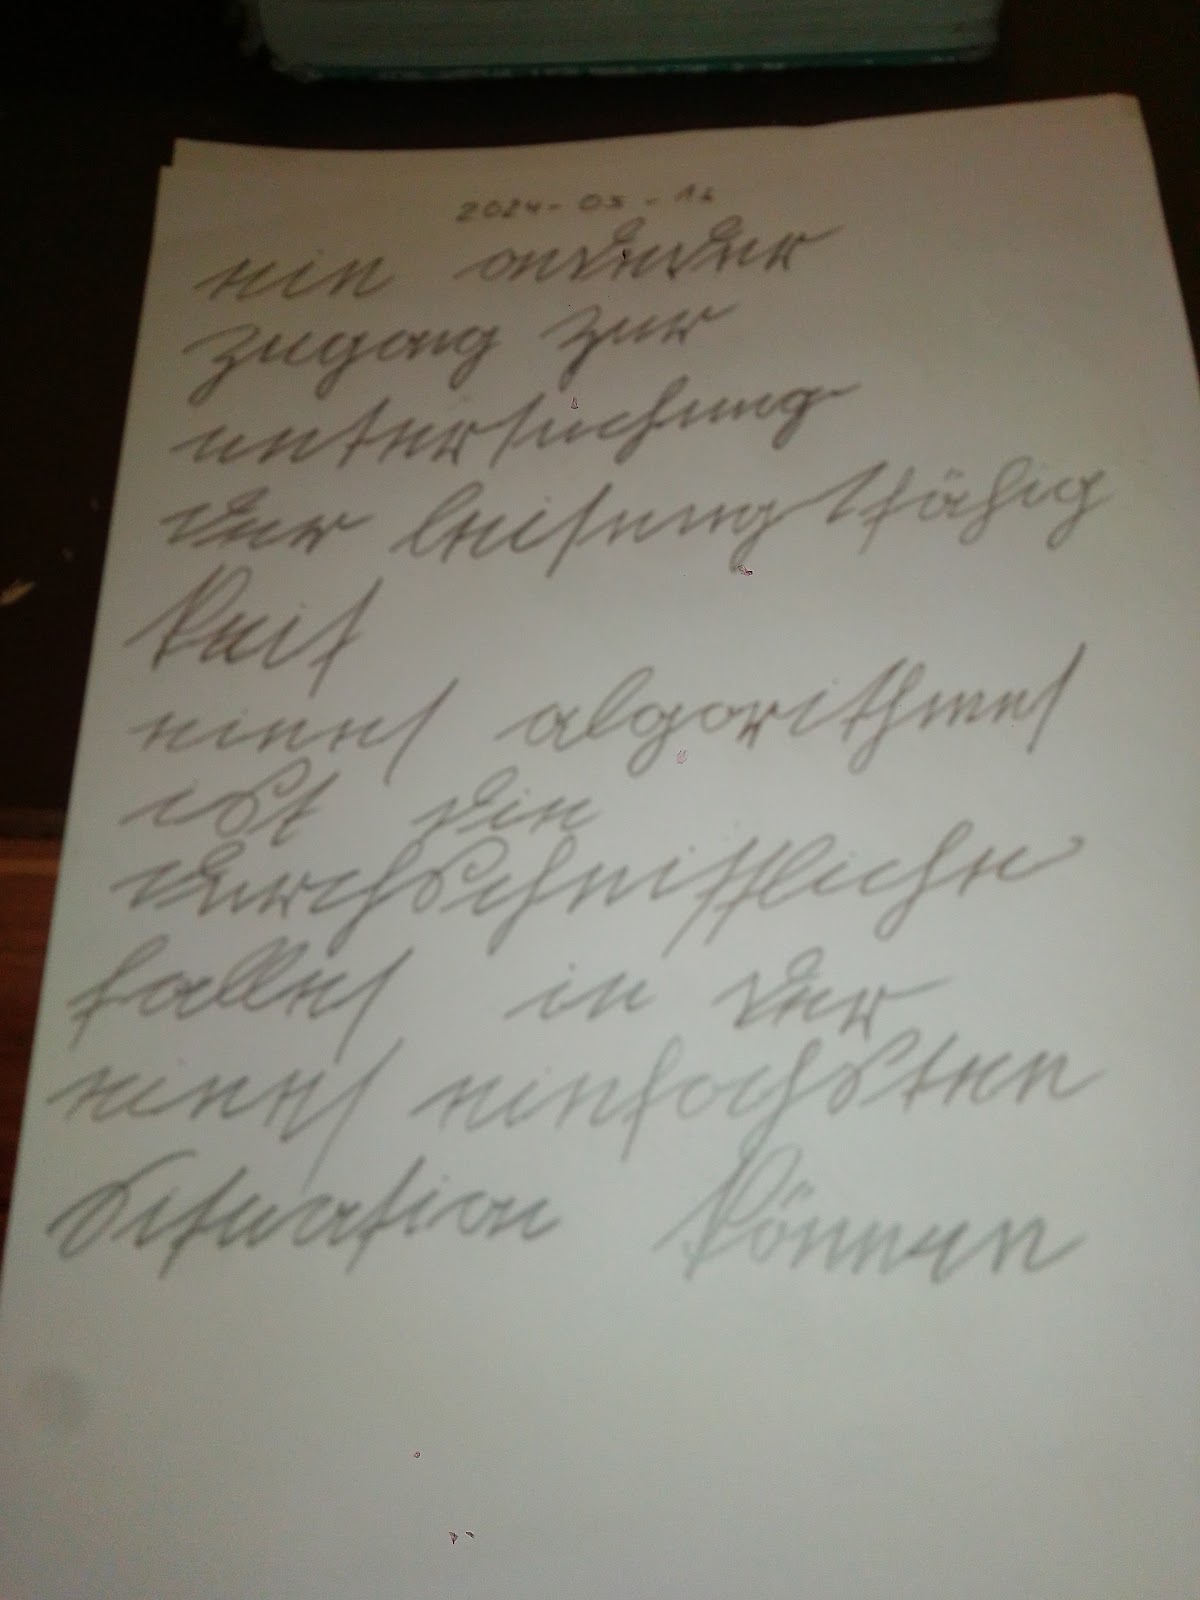 2024-03-12
ein anderer
zugang zur
untersuchung
der leisungsfähig
keit
eines algorithmus
ist die
durchschnittliche
falles in der
eines einfachsten
situation können